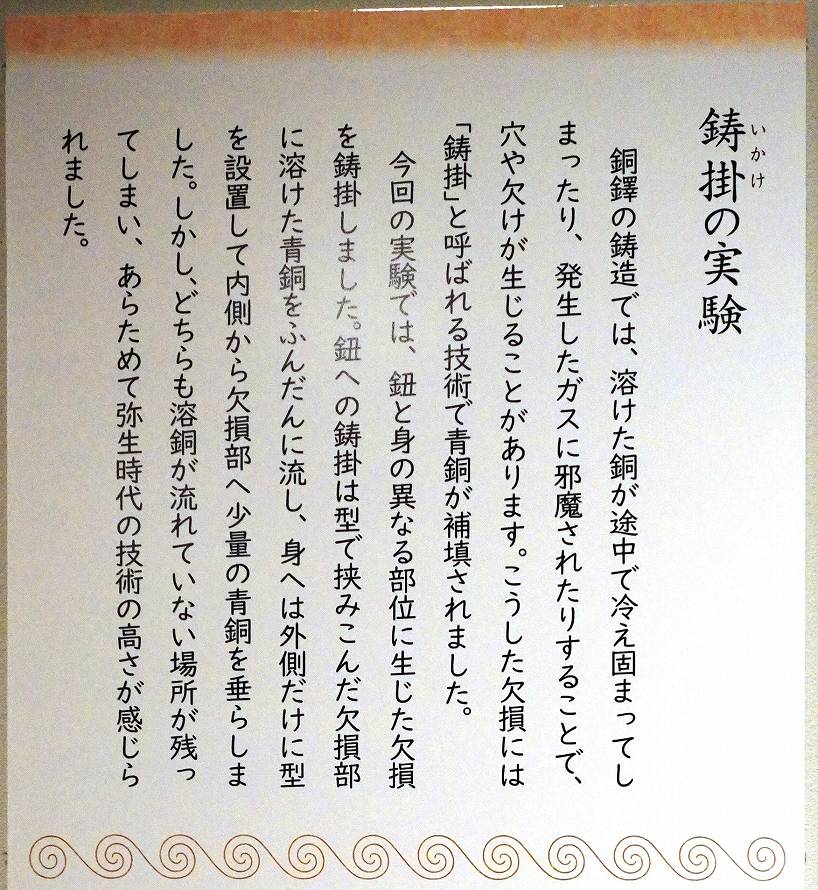 鋳掛の実験
いかけ
銅鐸の鋳造では、溶けた銅が途中で冷え固まってし
まったり、発生したガスに邪魔されたりすることで、
穴や欠けが生じることがあります。こうした欠損には
「鋳掛」と呼ばれる技術で青銅が補填されました。
今回の実験では、鈕と身の異なる部位に生じた欠損
を鋳掛しました。鈕への鋳掛は型で挟みこんだ欠損部
に溶けた青銅をふんだんに流し、身へは外側だけに型
を設置して内側から欠損部へ少量の青銅を垂らしま
した。しかし、どちらも溶銅が流れていない場所が残っ
てしまい、あらためて弥生時代の技術の高さが感じら
れました。